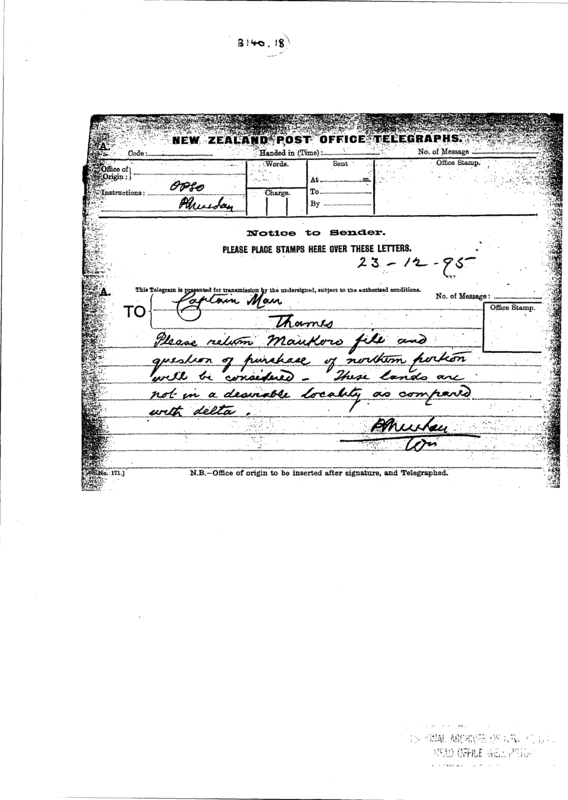 B140.18
NEW ZEALAND POST OFFICE TELEGRAPHS.
A.
Code: Handed in (Time): No. of Message
Office of Origin: Words. Sent Office Stamp.
At m.
Instructions: OPSO Charge. To
By
Notice to Sender.
PLEASE PLACE STAMPS HERE OVER THESE LETTERS.
23-12-95
A. This Telegram is presented for transmission by the undersigned, subject to the authorised conditions. No. of Message:
TO Captain Mair Office Stamp.
Thames
Please return Maukoro file and
question of purchase of northern portion
will be considered - These lands are
not in a desirable locality as compared
with delta.
No. 171.] N.B.—Office of origin to be inserted after signature, and Telegraphed.
ARCHIVES OF NEW
HEAD OFFICE WELLINGTON